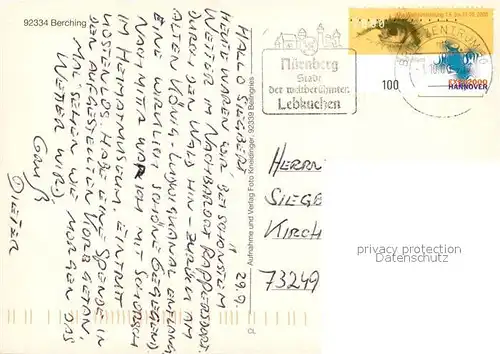 92334 Berching
HALLO SIEGBERT 29.9.
HEUTE WAREN WIR BEI SCHÖNSTEM
WETTER IM NACHBARORT RAPPERSDORF.
DURCH DEN WALD HIN - ZURÜCK AM
ALTEN KÖNIG-LUDWIGKANAL ENTLANG
EINE WIRKLICH SCHÖNE GEGEND
NACHMITTAG WAR ICH MIT SCHORSCH
IM HEIMATMUSEUM. EINTRITT
KOSTENLOS. HABE EINE SPENDE IN
DEN AUFGESTELLTEN KORB GETAN.
MAL SEHEN WIE MORGEN DAS
WETTER WIRD.
Gruß
DIETER
Aufnahme und Verlag Foto Kneidinger, 92339 Beilngries
Nürnberg
Stadt
der weltberühmten
Lebkuchen
100
EXPO2000
HANNOVER
HERRN
SIEGB
KIRCH
73249
privacy protection
Datenschutz